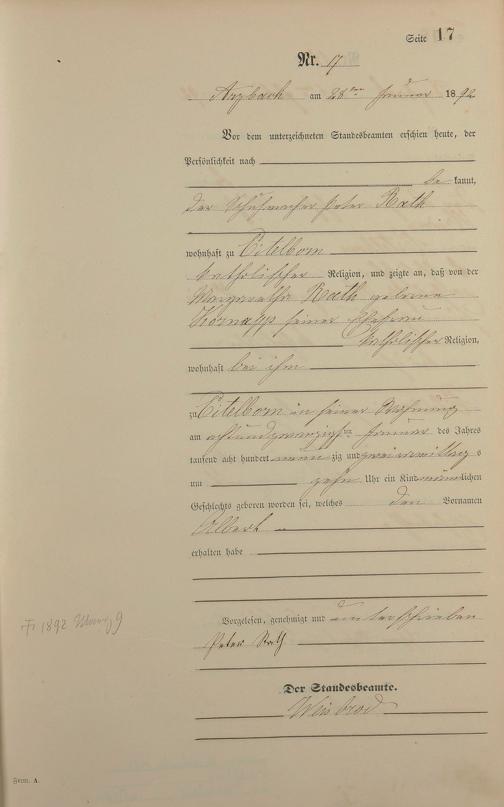 Seite 17
Nr. 17
Arzbach am 28ten Januar 1892
Vor dem unterzeichneten Standesbeamten erschien heute, der
Persönlichkeit nach
bekannt,
der Schuhmacher Peter Rath
wohnhaft zu Eitelborn
katholischer Religion, und zeigte an, daß von der
Margaretha Rath geborene
seiner Ehefrau
katholischer Religion,
wohnhaft bei ihm
zu Eitelborn in seiner Wohnung
am achtundzwanzigsten Januar des Jahres
tausend acht hundert neunzig und zwei vormittags
um zehn Uhr ein Kind männlichen
Geschlechts geboren worden sei, welches den Vornamen
Albert
erhalten habe
Vorgelesen, genehmigt und unterschrieben
Peter Rath
† 1892 9
Der Standesbeamte.
Weisbrod
Form. A.